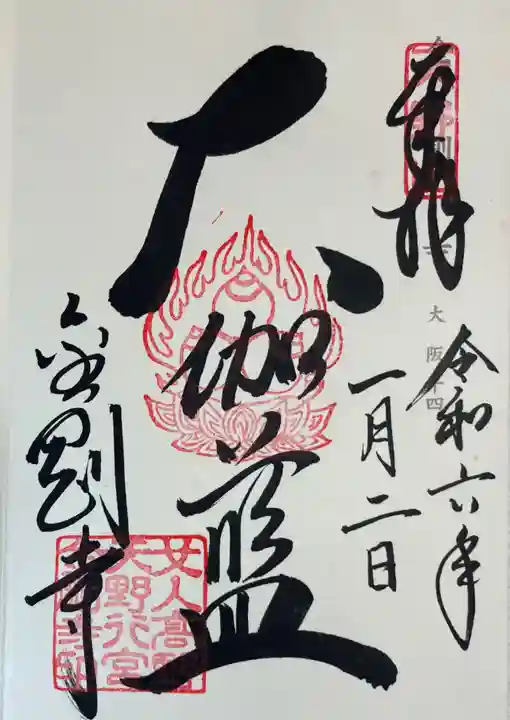 奉拝
大阪十四
令和六年
一月二日
大伽藍
金剛寺
女人高野
天野行宮
金剛寺印